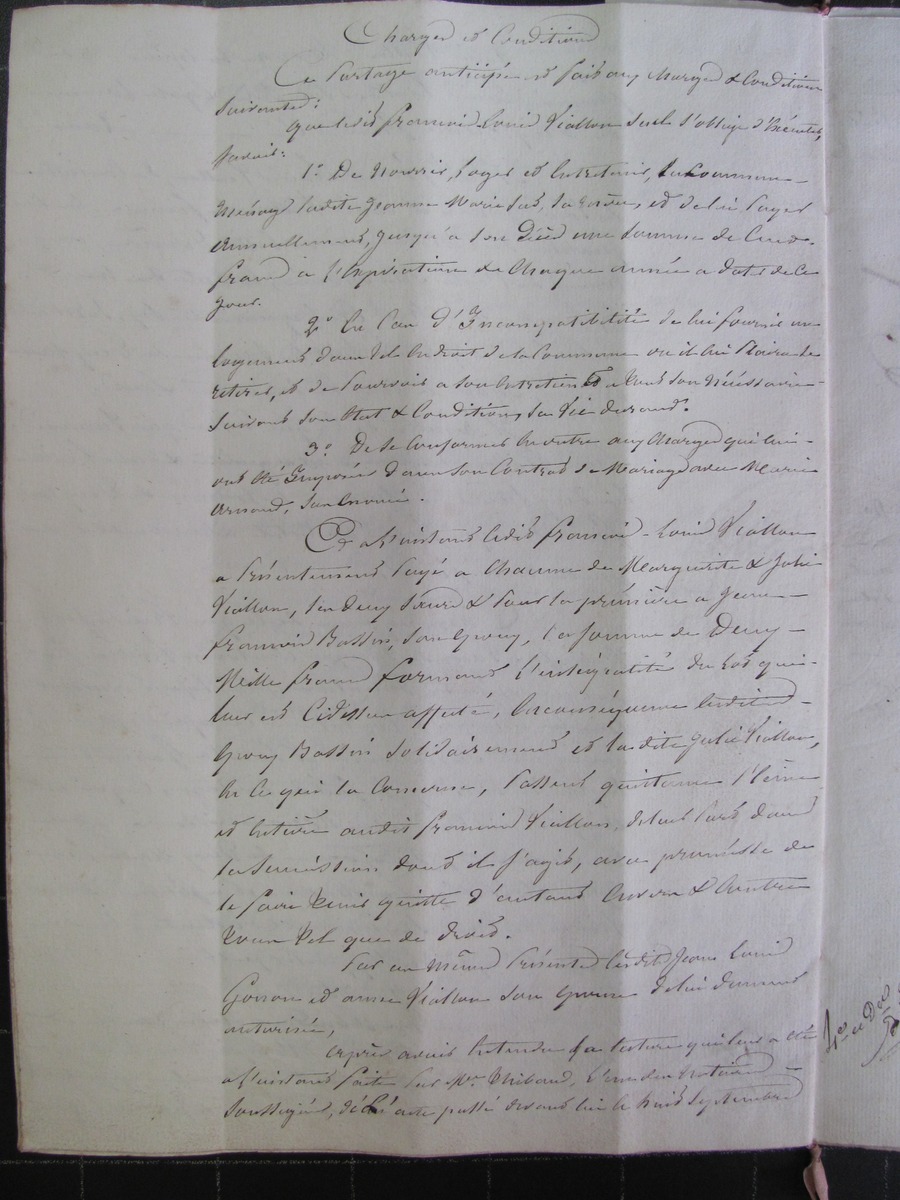 Charges et Conditions
Ce Partage anticipé est fait aux charges & Conditions
Suivantes:
Que ledit françois-Louis Viallon seul s'oblige d'exécuter,
Savoir:
1.° De Nourrir, Loger et Entretenir, en Commun-
Ménage ladite Jeanne Marie, sa, et de lui Payer
Annuellement, jusqu'à son Décès une Somme de Cent-
francs à l'Expiration de Chaque année a dater de Ce
Jour.
2.° En Cas d'Incompatibilité de lui fournir un
Logement dans tel Endroit de la Commune où il lui Plaira Se
retirer, et de Pourvoir a son Entretien & a tout son Nécéssaire
Suivant son Etat & Condition, sa Vie durant.
3.° De Se Conformer En outre aux Charges qui lui-
ont été Imposées dans son Contrat de Mariage avec Marie
Arnaud, son Epouse.
Et a l'instant ledit François-Louis Viallon
a Présentement Payé a Chacune de Marguerite & Julie
Viallon, ses deux Sœurs & Pour la première a Jean-
François Bassin, son Epoux, la Somme de Deux-
Mille francs formant l'intégralité du Lot qui-
leur est Cidessus affecté, En conséquence lesdits-
Epoux Bassin Solidairement et ladite Julie Viallon,
En Ce qui la Concerne, Passent quittance Pleine
et Entière audit François Viallon, de leur Part dans
la Succession dont il s'agit, avec promesse de
le faire tenir quitte d'autant Envers & Contre
tous tel que de droit.
Par au Même Présents lesdits Jean Louis
et anne Viallon son épouse de lui dument
autorisée,
Après avoir Entendu la lecture qui leur a été
a l'instant faite Par M.e Thibaud, l'un des Notaires-
Soussignés, de l'acte passé devant lui le huit Septembre